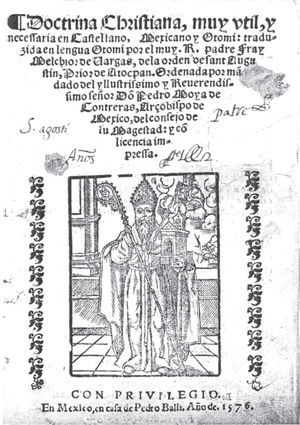 Doctrina Christiana, muy vtil, y
necessaria en Castellano, Mexicano y Otomi: tradu-
zida en lengua Otomi por el muy .R. padre Fray
Melchior de Vargas, de la orden de sant Augu-
stin, Prior de Atocpan. Ordenada por mã
dado del yllustrissimo y Reuerendis-
simo señor Dõ Pedro Moya de
Contreras, Arçobispo de
Mexico, del consejo de
su Magestad: y cõ
licencia im-
pressa.
S. agosti
Años
CON PRIVILEGIO.
En Mexico, en casa de Pedro Balli. Año de. 1576.